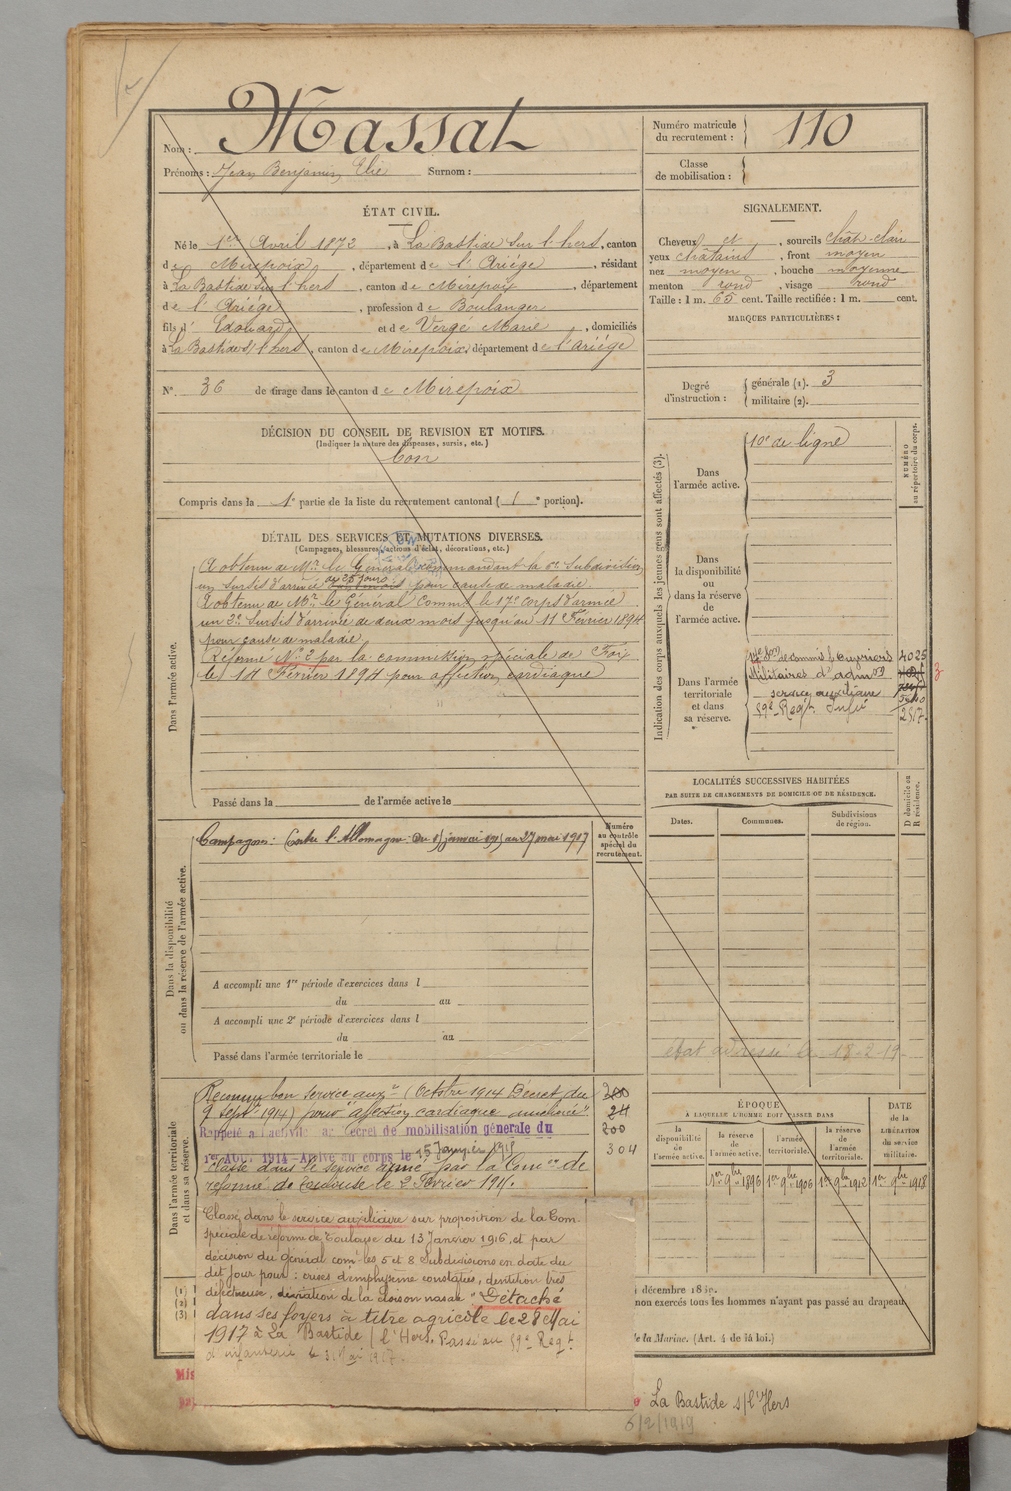 Nom : Massat
Prénoms : Jean Benjamin Elie Surnom :
Numéro matricule du recrutement : 110
Classe de mobilisation :
ÉTAT CIVIL.
Né le 1er Avril 1872, à La Bastide sur l'hers, canton
de Mirepoix, département de l'Ariége, résidant
à La Bastide sur l'hers, canton de Mirepoix, département
de l'Ariége, profession de Boulanger
fils d' Edouard et de Vergé Marie, domiciliés
à La Bastide s/ l'hers, canton de Mirepoix, département de l'Ariége
N° 36 de tirage dans le canton de Mirepoix
DÉCISION DU CONSEIL DE REVISION ET MOTIFS.
(Indiquer la nature des dispenses, sursis, etc.)
bon
Compris dans la 1e partie de la liste du recrutement cantonal (1e portion).
SIGNALEMENT.
Cheveux et, sourcils chât-clair
yeux châtains, front moyen
nez moyen, bouche moyenne
menton rond, visage rond
Taille : 1 m. 65 cent. Taille rectifiée : 1 m. cent.
MARQUES PARTICULIÈRES :
Degré d'instruction : générale (1). 3
militaire (2).
DÉTAIL DES SERVICES ET MUTATIONS DIVERSES.
(Campagnes, blessures, actions d'éclat, décorations, etc.)
Dans l'armée active.
A obtenu de Mr. le Général commandant la 6e Subdivision
un sursis d'arrivée de 25 jours pour cause de maladie.
A obtenu de Mr. le Général Commt le 17e corps d'armée
un 2e Sursis d'arrivée de deux mois jusqu'au 11 Février 1894
pour cause de maladie.
Réformé N° 2 par la commission spéciale de Foix
le 14 Février 1894 pour affection cardiaque
Passé dans la de l'armée active le
Indication des corps auxquels les jeunes gens sont affectés (3).
NUMÉRO au répertoire du corps.
Dans l'armée active.
10e de ligne
Dans la disponibilité ou dans la réserve de l'armée active.
Dans l'armée territoriale et dans sa réserve.
17e Son de commis & ouvriers 4025
Militaires d'admon
service auxiliaire
59e Regt. Infie 2517
Dans la disponibilité ou dans la réserve de l'armée active.
Campagnes : Contre l'Allemagne du 15 janvier 1915 au 27 mai 1917
Numéro au contrôle spécial du recrutement.
A accompli une 1re période d'exercices dans l
du au
A accompli une 2e période d'exercices dans l
du au
Passé dans l'armée territoriale le
LOCALITÉS SUCCESSIVES HABITÉES
PAR SUITE DE CHANGEMENTS DE DOMICILE OU DE RÉSIDENCE.
Dates. Communes. Subdivisions de région. D domicile ou R résidence.
état adressé le 18-2-19-
Dans l'armée territoriale et dans sa réserve.
Reconnu bon service auxre (Octobre 1914 Décret du 300
9 septe 1914) pour "affection cardiaque améliorée" 24
Rappelé à l'activité au Décret de mobilisation générale du 200
1er Août 1914 - Arrivé au corps le 15 Janvier 1915 304
Classé dans le service armé par la Comon de
réforme de Toulouse le 2 Février 1915.
Classé dans le service auxiliaire sur proposition de la Com
spéciale de réforme de Toulouse du 13 Janvier 1916, et par
décision du général comt les 5 et 8 Subdivisions en date du
dit jour pour : crises d'emphysème constatées, dentition très
défectueuse, déviation de la cloison nasale. Détaché
dans ses foyers à titre agricole le 28 Mai
1917 à La Bastide s/ l'Hers. Passé au 59e Regt
d'infanterie le 31 Mai 1917.
ÉPOQUE
A LAQUELLE L'HOMME DOIT PASSER DANS
DATE de la LIBÉRATION du service militaire.
la disponibilité de l'armée active. la réserve de l'armée active. l'armée territoriale. la réserve de l'armée territoriale.
1er 9bre 1896 1er 9bre 1906 1er 9bre 1912 1er 9bre 1918
(1)
(2)
(3)
non exercés tous les hommes n'ayant pas passé au drapeau
de la Marine. (Art. 4 de la loi.)
La Bastide s/l'Hers
5/2/1919